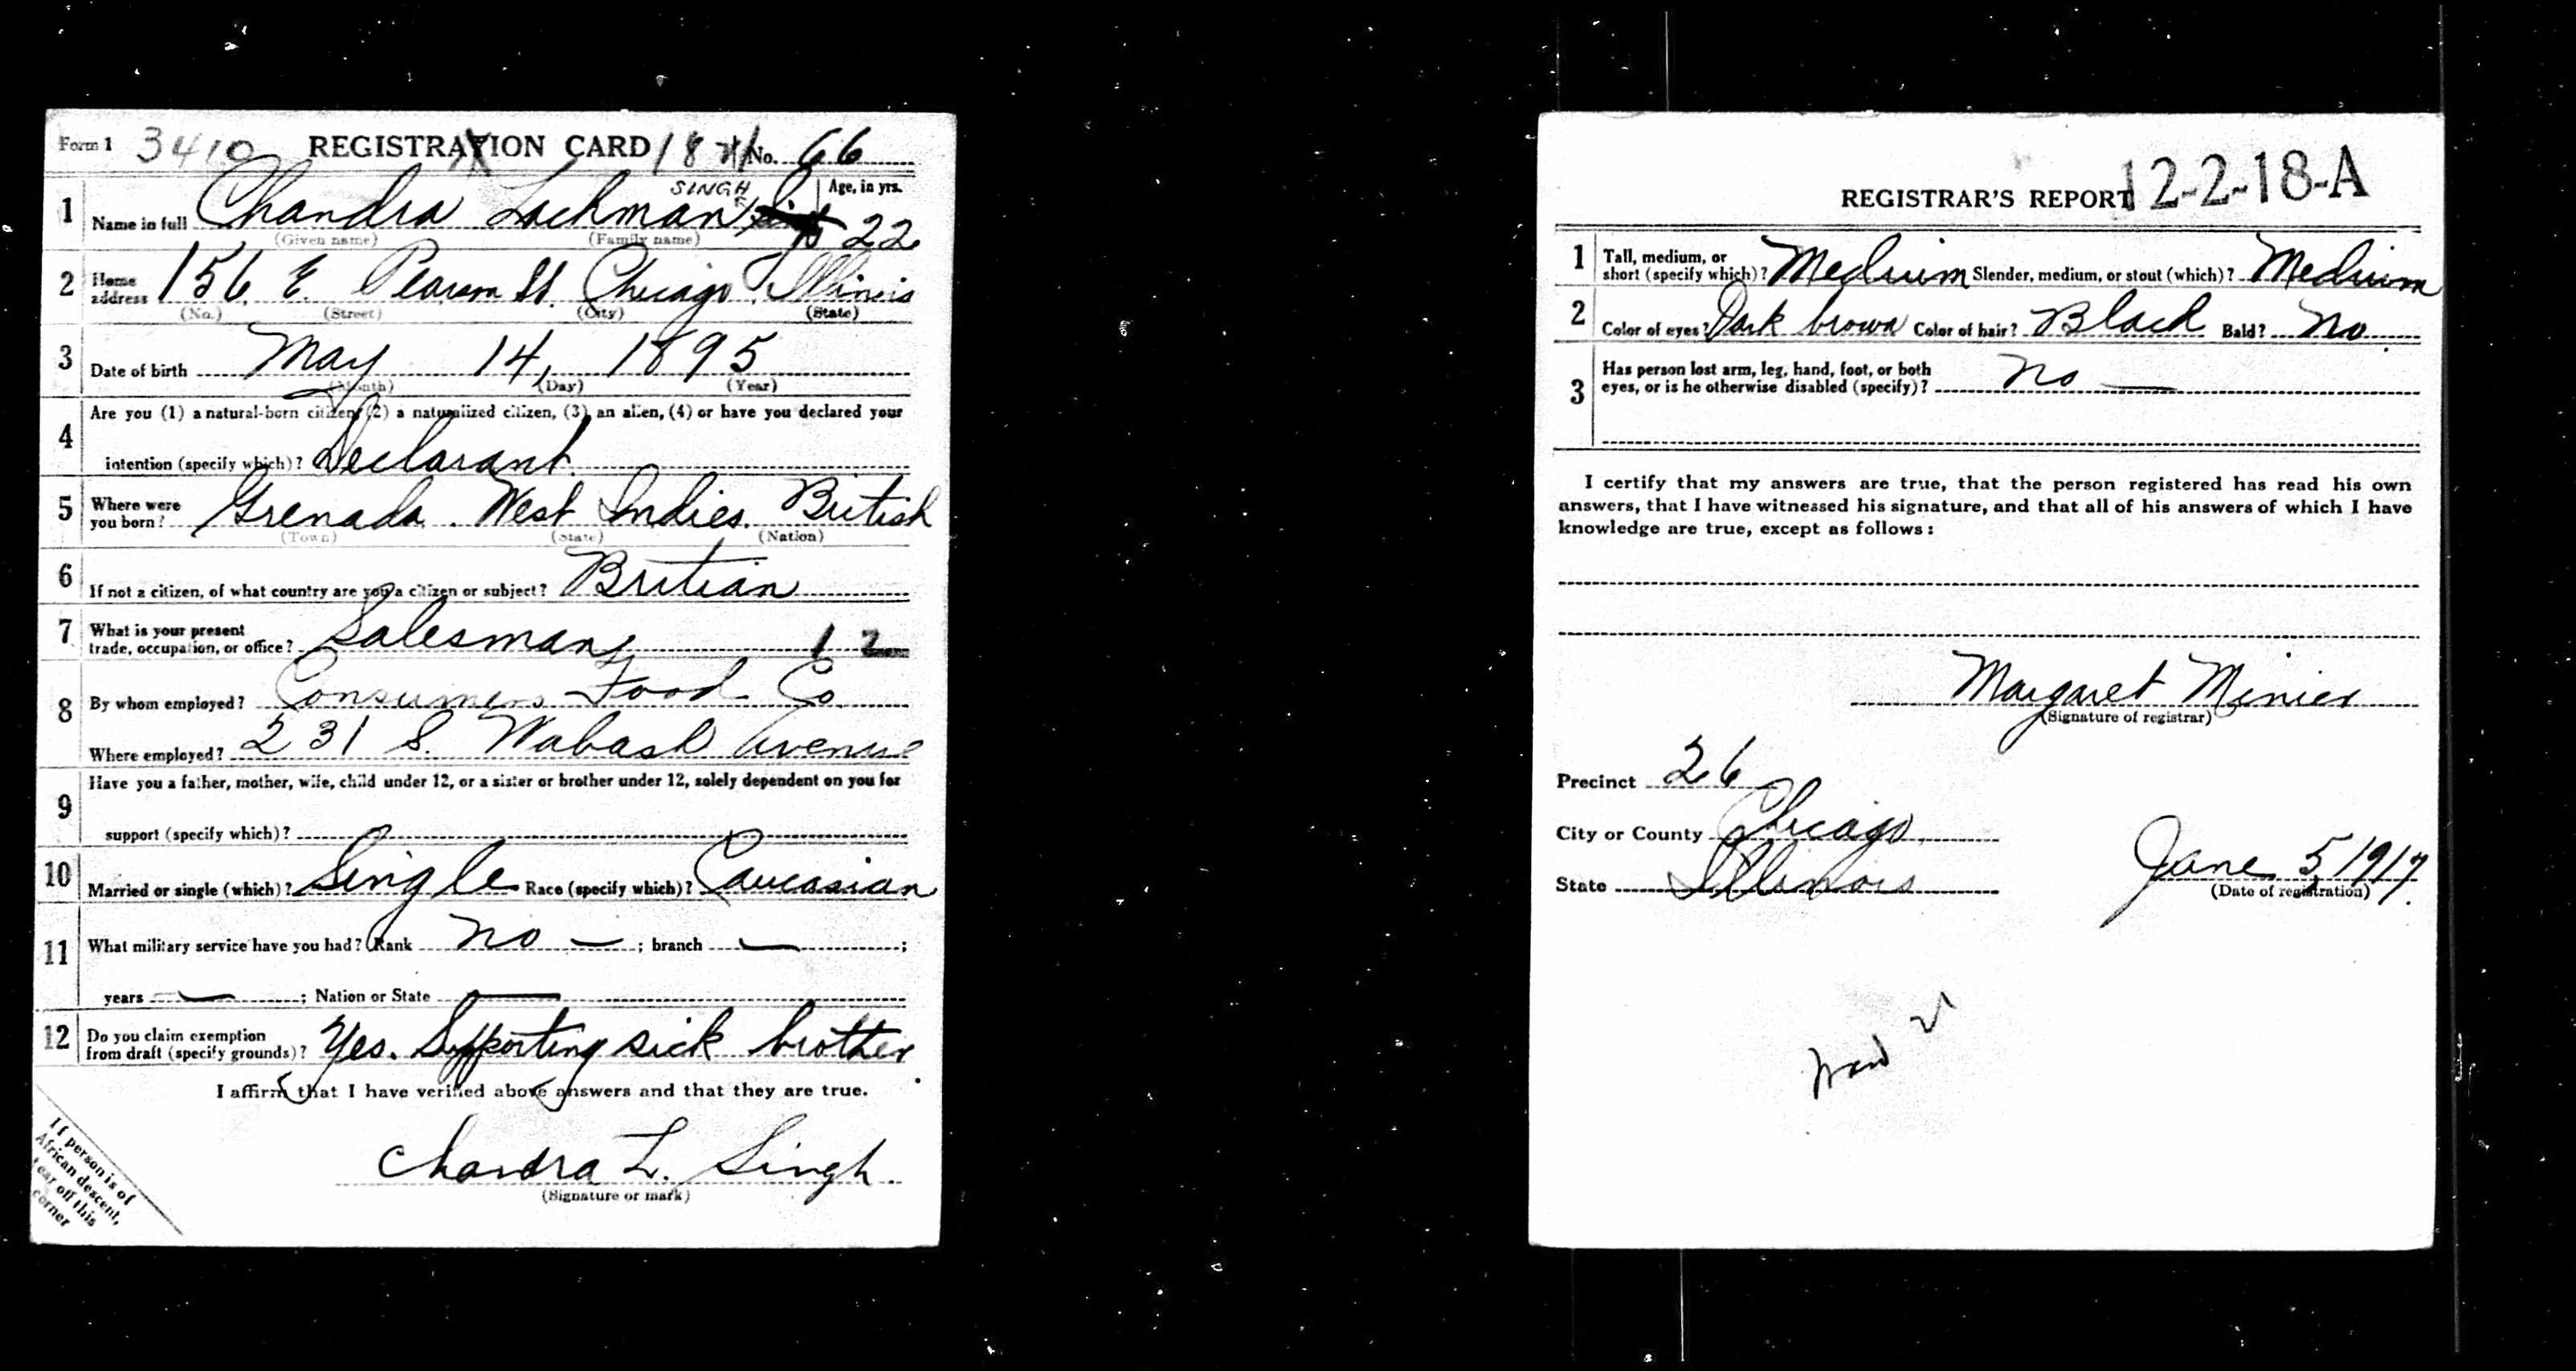 Form 1 3410 REGISTRATION CARD No. 66
SINGH Age, in yrs.
1 Name in full Chandra Lachman 22
(Given name) (Family name)
2 Home address 156 E. Pearson St. Chicago Illinois
(No.) (Street) (City) (State)
3 Date of birth May 14, 1895
(Month) (Day) (Year)
Are you (1) a natural-born citizen, (2) a naturalized citizen, (3) an alien, (4) or have you declared your
4 intention (specify which)? Declarant
5 Where were you born? Grenada. West Indies. British
(Town) (State) (Nation)
6 If not a citizen, of what country are you a citizen or subject? Britian
7 What is your present trade, occupation, or office? Salesman 12
8 By whom employed? Consumers Food Co.
Where employed? 231 S. Wabash Avenue
Have you a father, mother, wife, child under 12, or a sister or brother under 12, solely dependent on you for
9 support (specify which)?
10 Married or single (which)? Single Race (specify which)? Caucasian
11 What military service have you had? Rank no — ; branch — ;
years — ; Nation or State —
12 Do you claim exemption from draft (specify grounds)? Yes. Supporting sick brother
I affirm that I have verified above answers and that they are true.
Chandra L. Singh
(Signature or mark)
If person is of
African descent,
tear off this
corner
REGISTRAR'S REPORT 12-2-18-A
1 Tall, medium, or
short (specify which)? Medium Slender, medium, or stout (which)? Medium
2 Color of eyes? Dark brown Color of hair? Black Bald? No
3 Has person lost arm, leg, hand, foot, or both
eyes, or is he otherwise disabled (specify)? No —
I certify that my answers are true, that the person registered has read his own
answers, that I have witnessed his signature, and that all of his answers of which I have
knowledge are true, except as follows:
Margaret Minier
(Signature of registrar)
Precinct 26
City or County Chicago
State Illinois June 5, 1917.
(Date of registration)
Ward 21